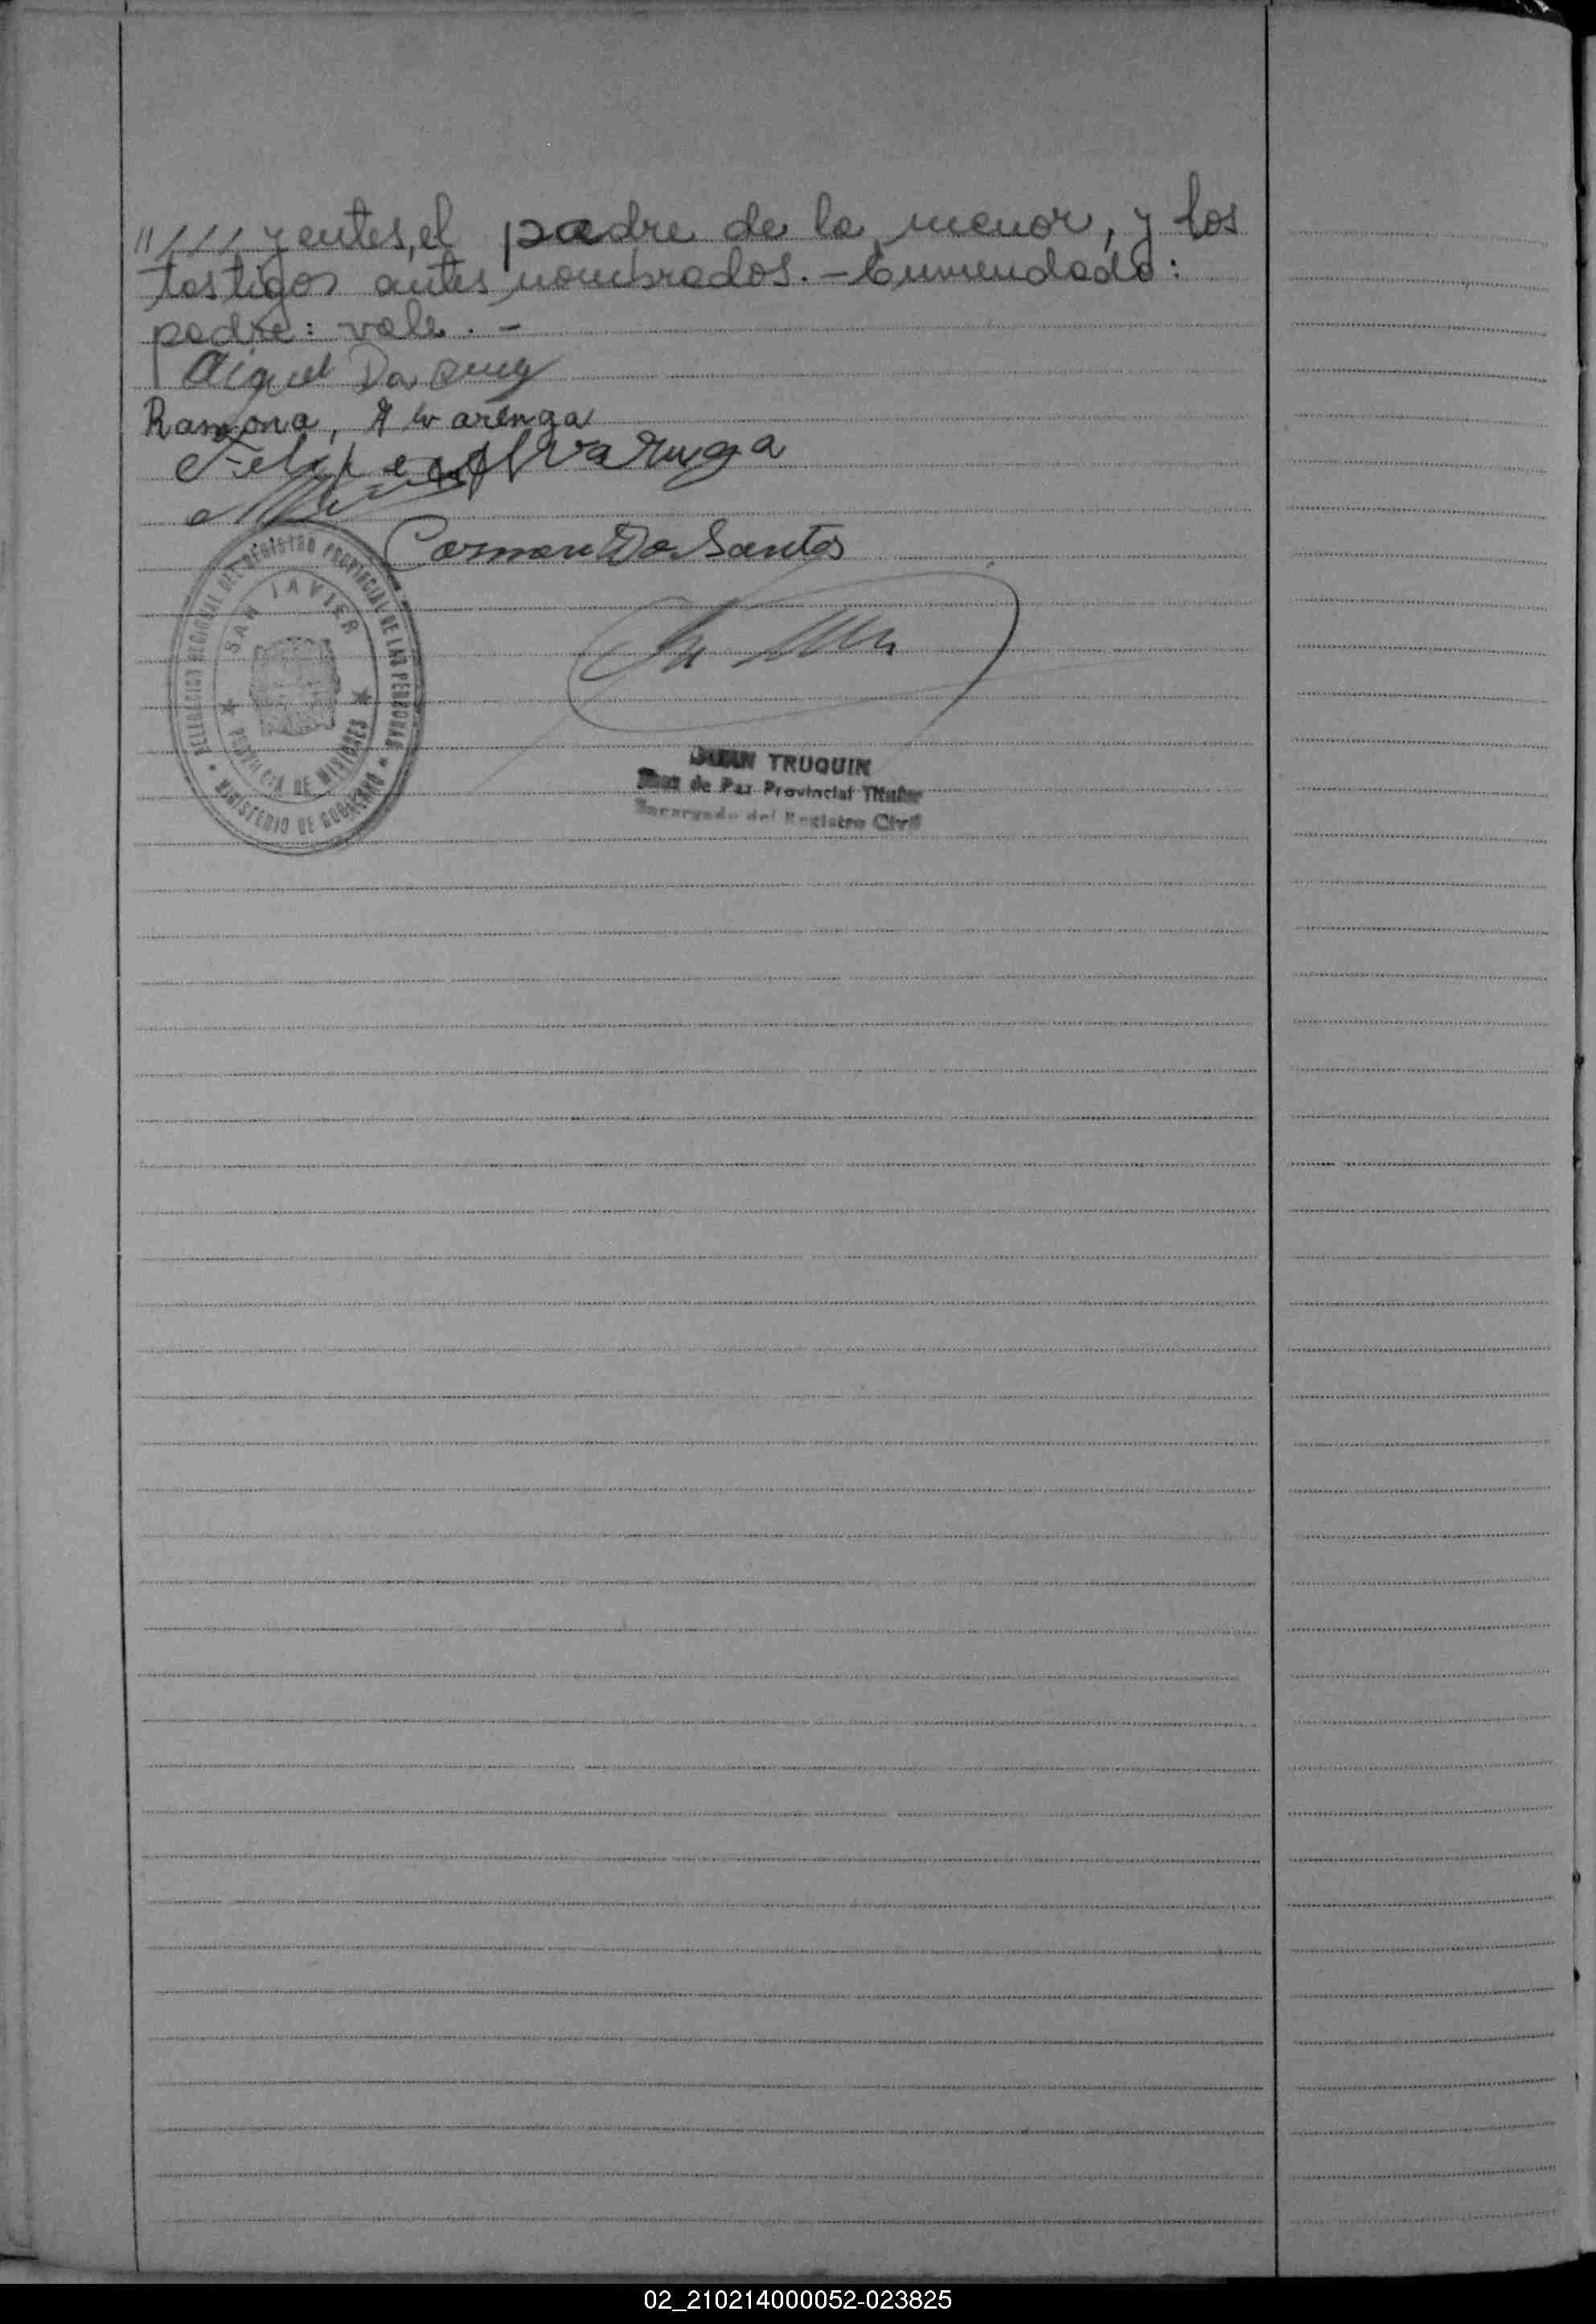 "//// yentes, el padre de la menor, y los
testigos antes nombrados. - Enmendado:
padre: vale. -
Ramona, Alvarenga
Felipe Alvarenga
Carmen Do Santos
DELEGACION REGIONAL DEL REGISTRO PROVINCIAL DE LAS PERSONAS
SAN JAVIER
PROVINCIA DE MISIONES
MINISTERIO DE GOBIERNO
JUAN TRUQUIN
Juez de Paz Provincial Titular
Encargado del Registro Civil
02_210214000052-023825